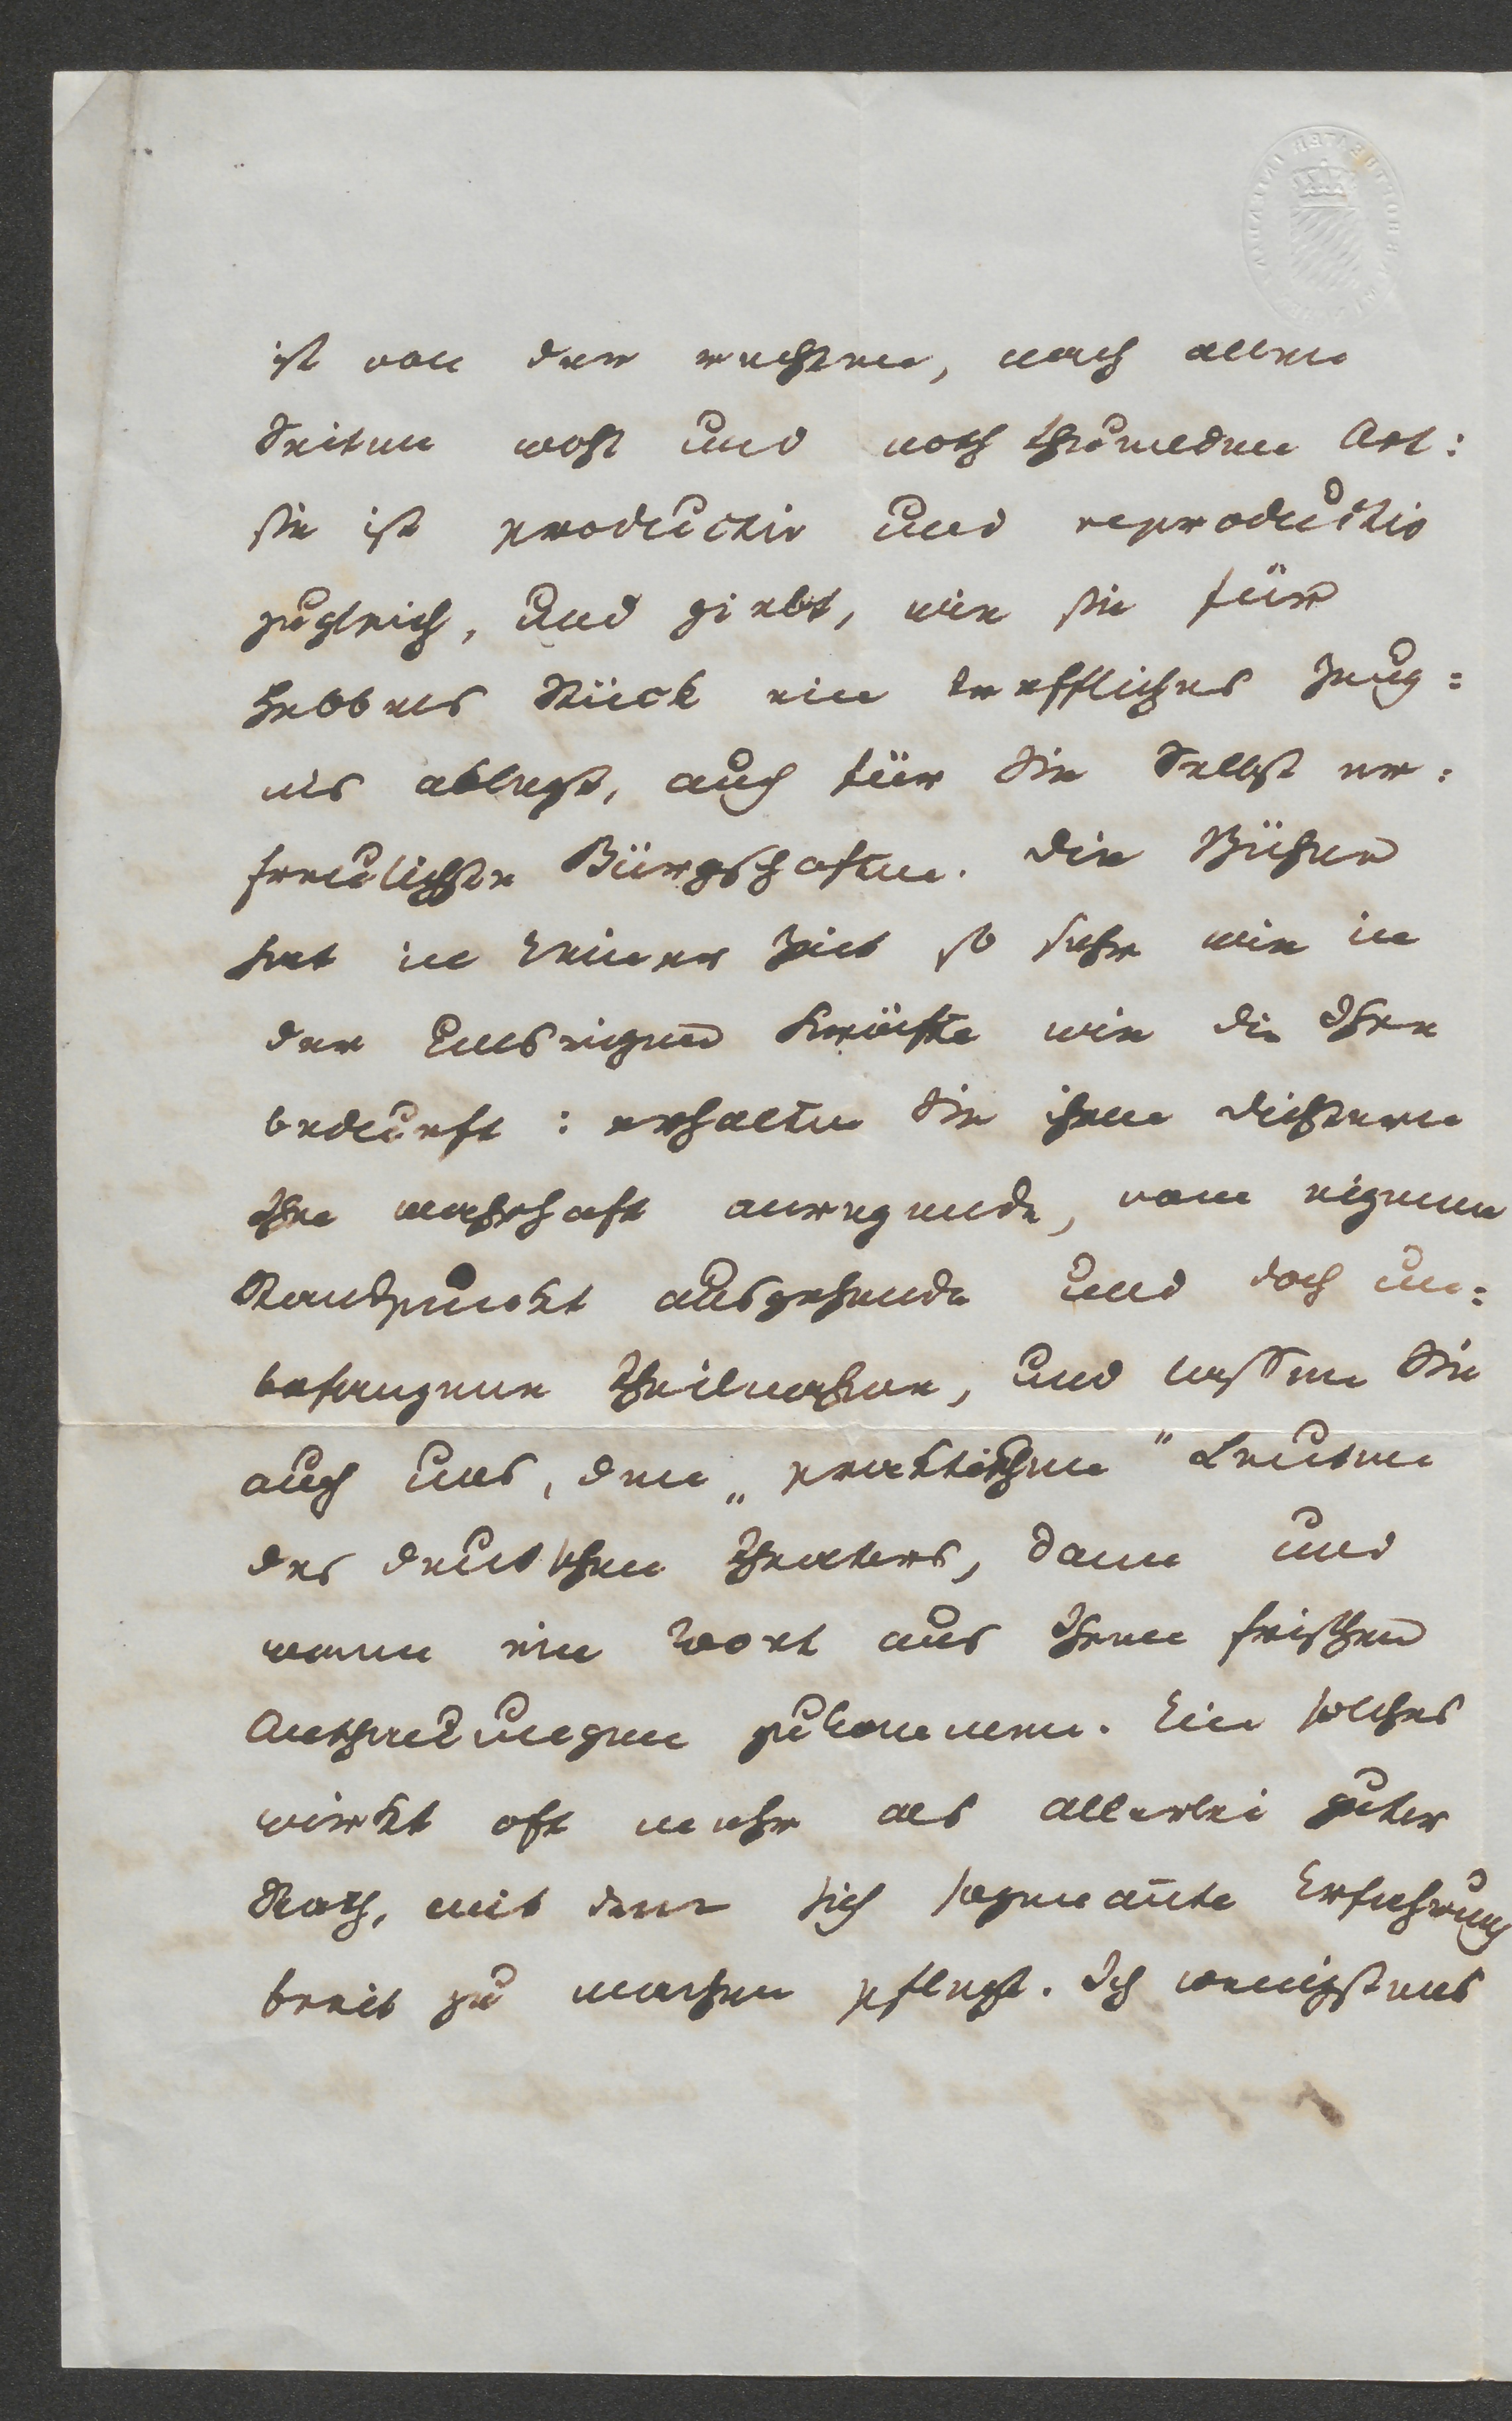 ist von der rechten, nach allen
Seiten wohl und noth thuenden Art:
sie ist productiv und reproductiv
zugleich, und giebt, wie sie für
Hebbels Stück ein treffliches Zeug=
nis ablegt, auch für Sie Selbst er=
freulichste Bürgschaften. Die Bühne
hat in keiner Zeit so sehr wie in
der unsrigen Kräfte wie die Ihre
bedurft: erhalten Sie ihren Dichtern
Ihre wahrhaft anregende, vom eignen
Standpunkt ausgehende und doch un=
befangene Theilnahme, und lassen Sie
auch uns, den „praktischen" Leuten
des deutschen Theaters, dann und
wann ein Wort aus Ihren frischen
Anschauungen zukommen. Ein solches
wirkt oft mehr als allerlei guter
Rath, mit dem sich sogenan̄te Erfahrung
breit zu machen pflegt. Ich wenigstens